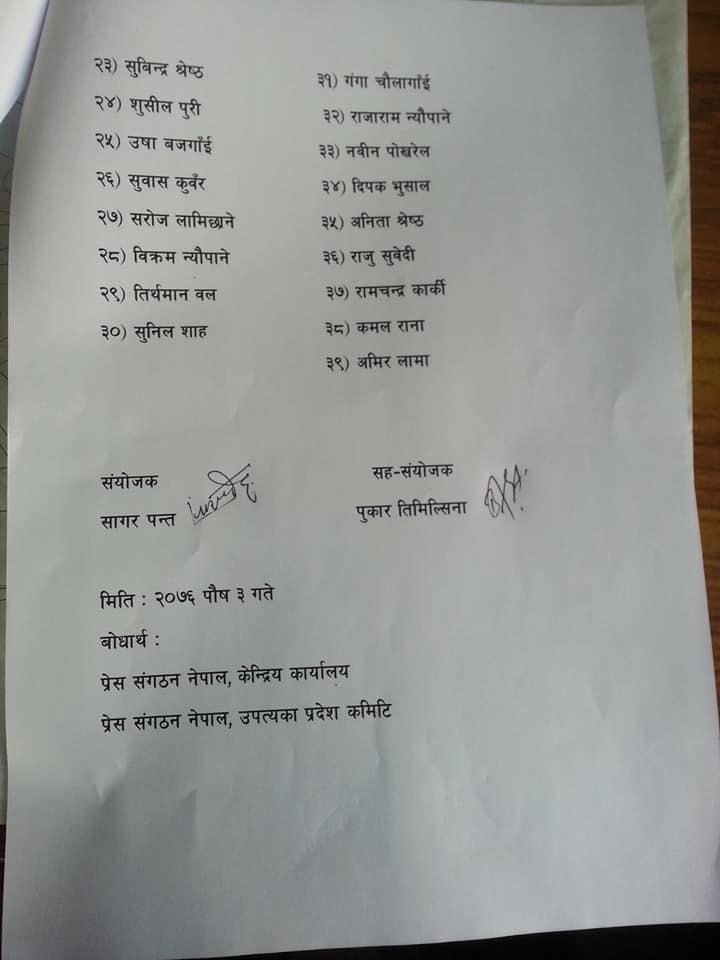 २३) सुबिन्द्र श्रेष्ठ
२४) शुसील पुरी
२५) उषा बजगाँई
२६) सुवास कुवँर
२७) सरोज लामिछाने
२८) विक्रम न्यौपाने
२९) तिर्थमान वल
३०) सुनिल शाह
३१) गंगा चौलागाँई
३२) राजाराम न्यौपाने
३३) नवीन पोखरेल
३४) दिपक भुसाल
३५) अनिता श्रेष्ठ
३६) राजु सुवेदी
३७) रामचन्द्र कार्की
३८) कमल राना
३९) अमिर लामा
संयोजक
सागर पन्त
सह-संयोजक
पुकार तिमिल्सिना
मिति : २०७६ पौष ३ गते
बोधार्थ :
प्रेस संगठन नेपाल, केन्द्रिय कार्यालय
प्रेस संगठन नेपाल, उपत्यका प्रदेश कमिटि